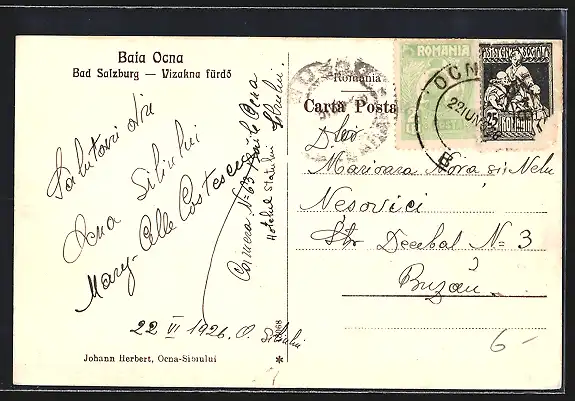 Baia Ocna
Bad Salzburg — Vizakna fürdő
Salutari din
Ocna Sibiului
Mary- Costescu
Camera N= 63 Baile Ocna
Hotelul Statului Sibiului.
22 VI 1926. O. Sibiului
Johann Herbert, Ocna-Sibiului
*
România
Carta Posta
ROMANIA
OCN
22 IUN
B
ASISTENTA SOCIALA
25
ROMANIA
D-lor
Marioara Nora și Nelu
Nesovici
Str Decebal N= 3
Buzău
6-